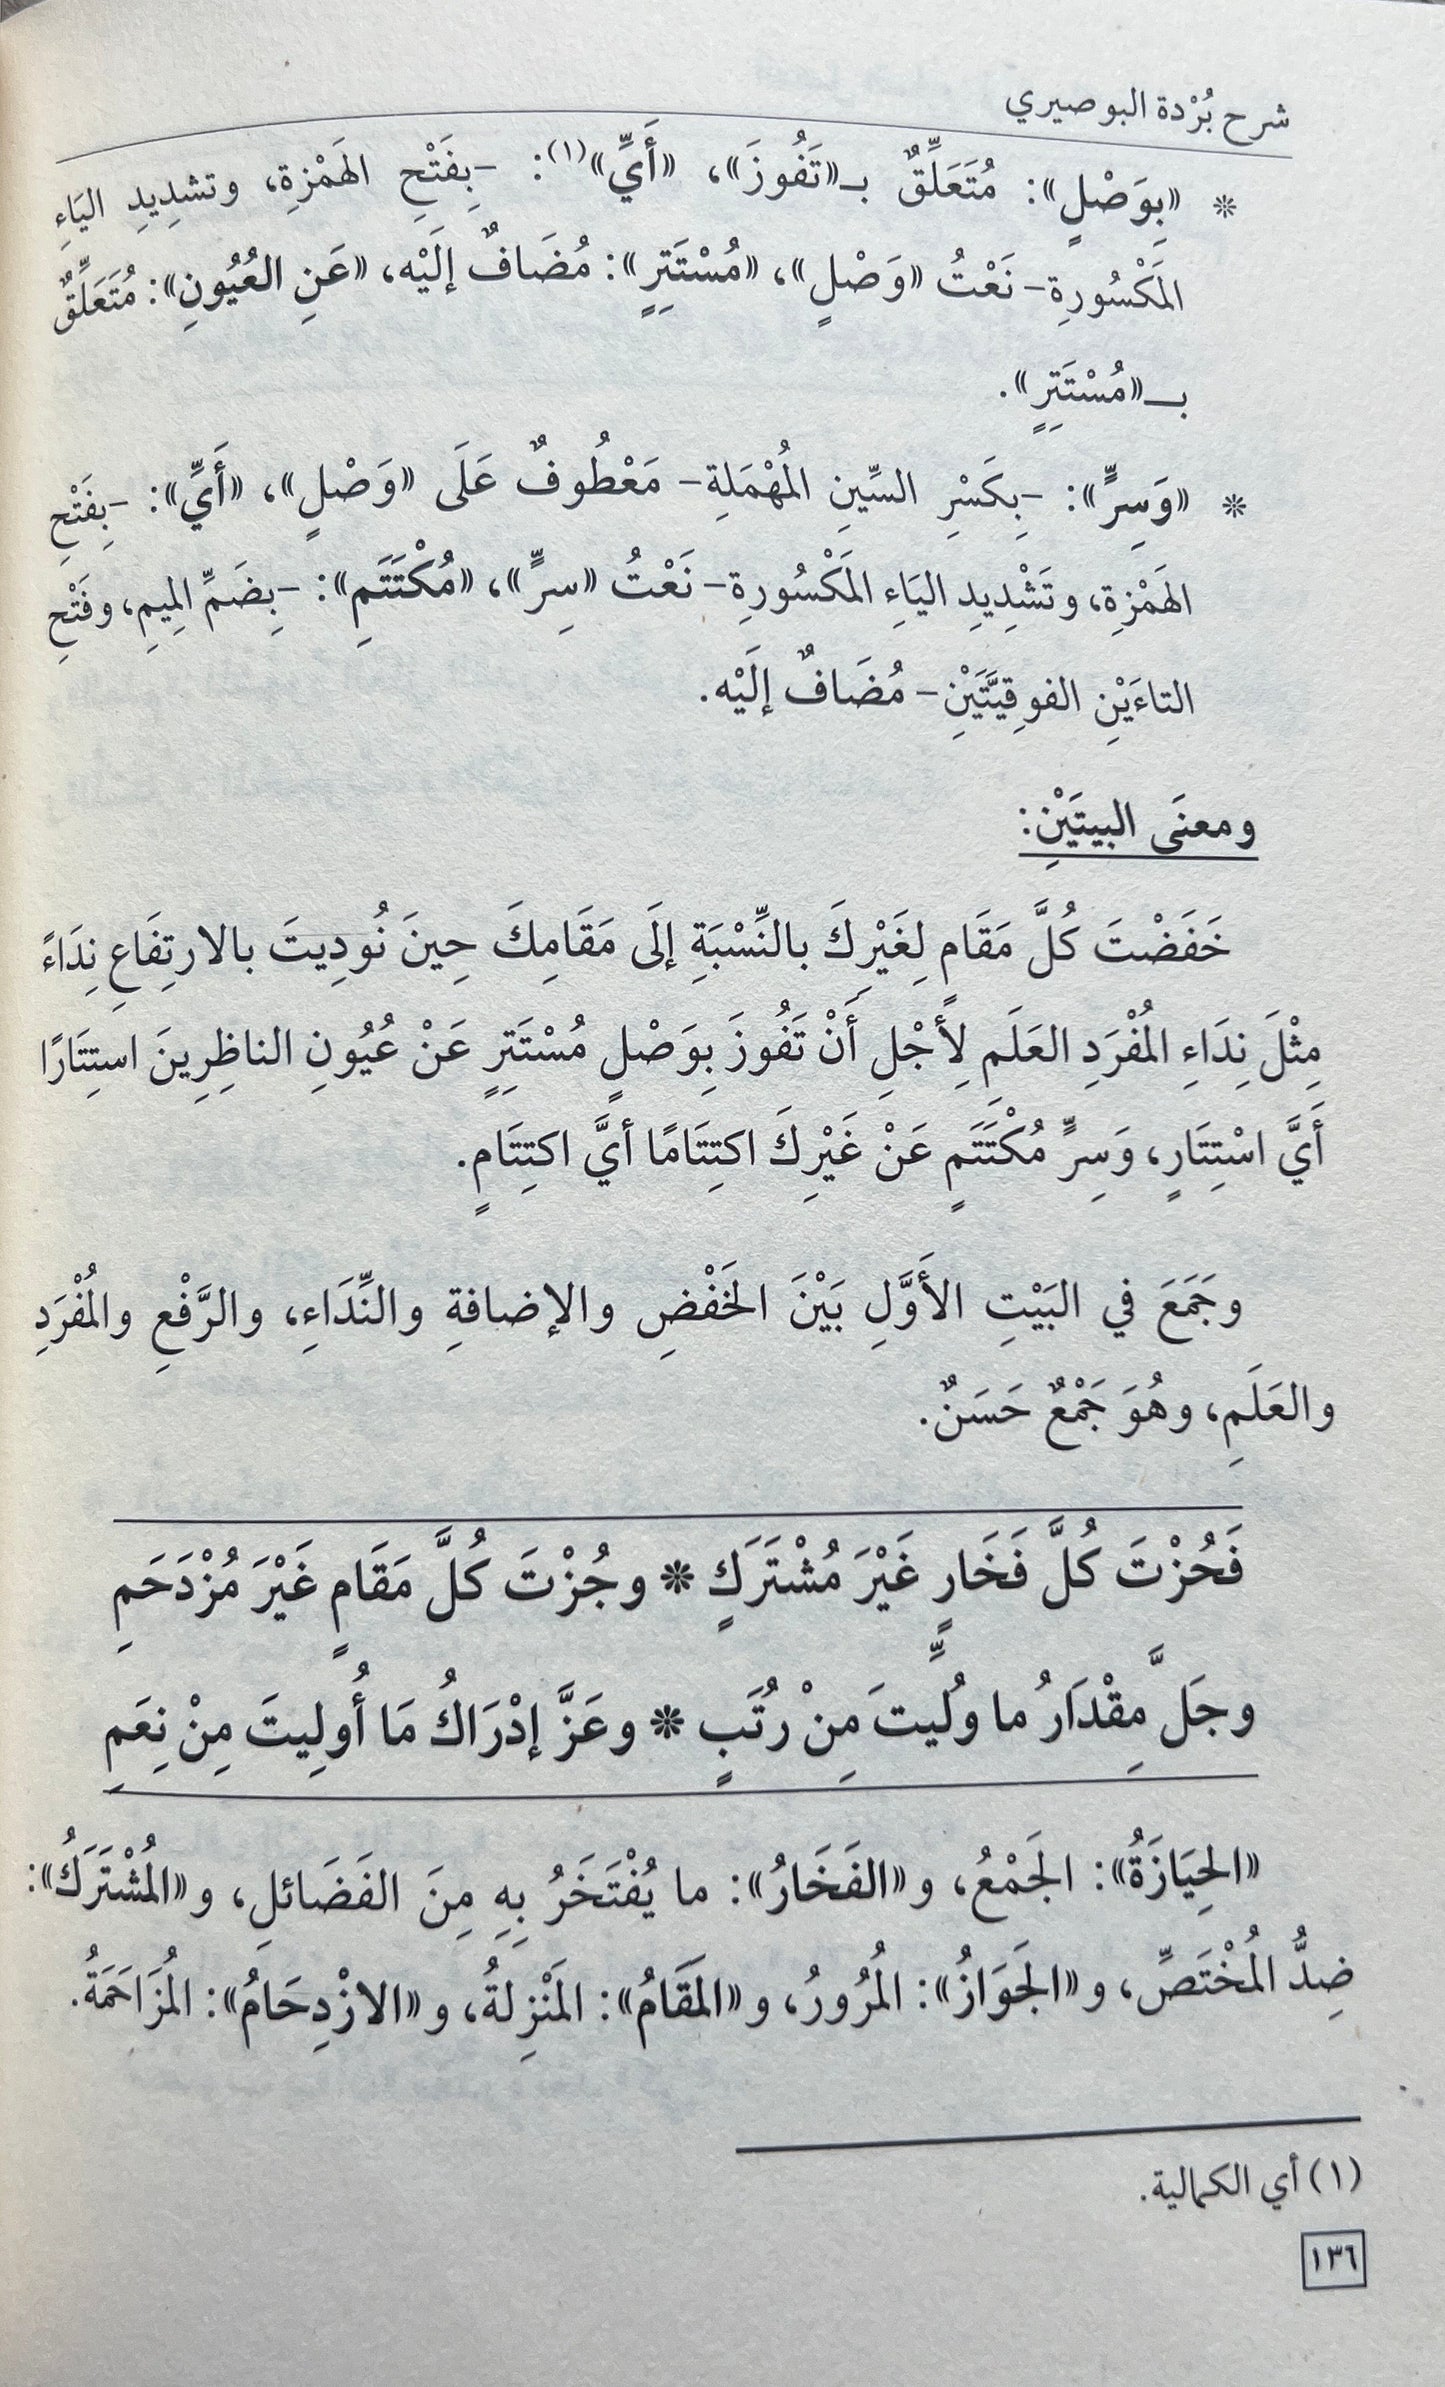 شرح بُرْدة البوصيري
* «بِوَصْلٍ»: مُتَعَلِّقٌ بـ«تَفُوزَ»، «أَيِّ»(١): -بِفَتْحِ الهَمْزةِ، وتشدِيدِ اليَاءِ
المَكْسُورةِ- نَعْتُ «وَصْلٍ»، «مُسْتَتِرٍ»: مُضَافٌ إلَيْه، «عَنِ العُيُونِ»: مُتَعَلِّقٌ
بـ«مُسْتَتِرٍ».
* «وَسِرٍّ»: -بِكَسْرِ السِّينِ المُهْمَلةِ- مَعْطُوفٌ عَلَى «وَصْلٍ»، «أَيِّ»: -بِفَتْحِ
الهَمْزةِ، وتَشْدِيدِ اليَاءِ المَكْسُورةِ- نَعْتُ «سِرٍّ»، «مُكْتَتَمِ»: -بِضَمِّ المِيمِ، وفَتْحِ
التاءَيْنِ الفوقِيَّتَيْنِ- مُضَافٌ إلَيْه.
ومعنَى البيتَيْنِ:
خَفَضْتَ كُلَّ مَقَامٍ لِغَيْرِكَ بالنِّسْبَةِ إلَى مَقَامِكَ حِينَ نُودِيتَ بالارتِفَاعِ نِدَاءً
مِثْلَ نِدَاءِ المُفْرَدِ العَلَمِ لِأَجْلِ أَنْ تَفُوزَ بِوَصْلٍ مُسْتَتِرٍ عَنْ عُيُونِ الناظِرِينَ استِتَارًا
أَيَّ اسْتِتَارٍ، وَسِرٍّ مُكْتَتَمٍ عَنْ غَيْرِكَ اكتِتَامًا أيَّ اكتِتَامٍ.
وجَمَعَ في البَيْتِ الأَوَّلِ بَيْنَ الخَفْضِ والإضافةِ والنِّدَاءِ، والرَّفْعِ والمُفْرَدِ
والعَلَمِ، وهُوَ جَمْعٌ حَسَنٌ.
فَحُزْتَ كُلَّ فَخَارٍ غَيْرَ مُشْتَرَكٍ * وجُزْتَ كُلَّ مَقَامٍ غَيْرَ مُزْدَحَمِ
وجَلَّ مِقْدَارُ ما وُلِّيتَ مِنْ رُتَبٍ * وعَزَّ إدْرَاكُ مَا أُولِيتَ مِنْ نِعَمِ
«الحِيَازَةُ»: الجَمْعُ، و«الفَخَارُ»: ما يُفْتَخَرُ بِهِ مِنَ الفَضَائلِ، و«المُشْتَرَكُ»:
ضِدُّ المُخْتَصِّ، و«الجَوَازُ»: المُرُورُ، و«المَقَامُ»: المَنْزِلةُ، و«الازْدِحَامُ»: المُزَاحَمَةُ.
(١) أي الكمالية.
١٣٦